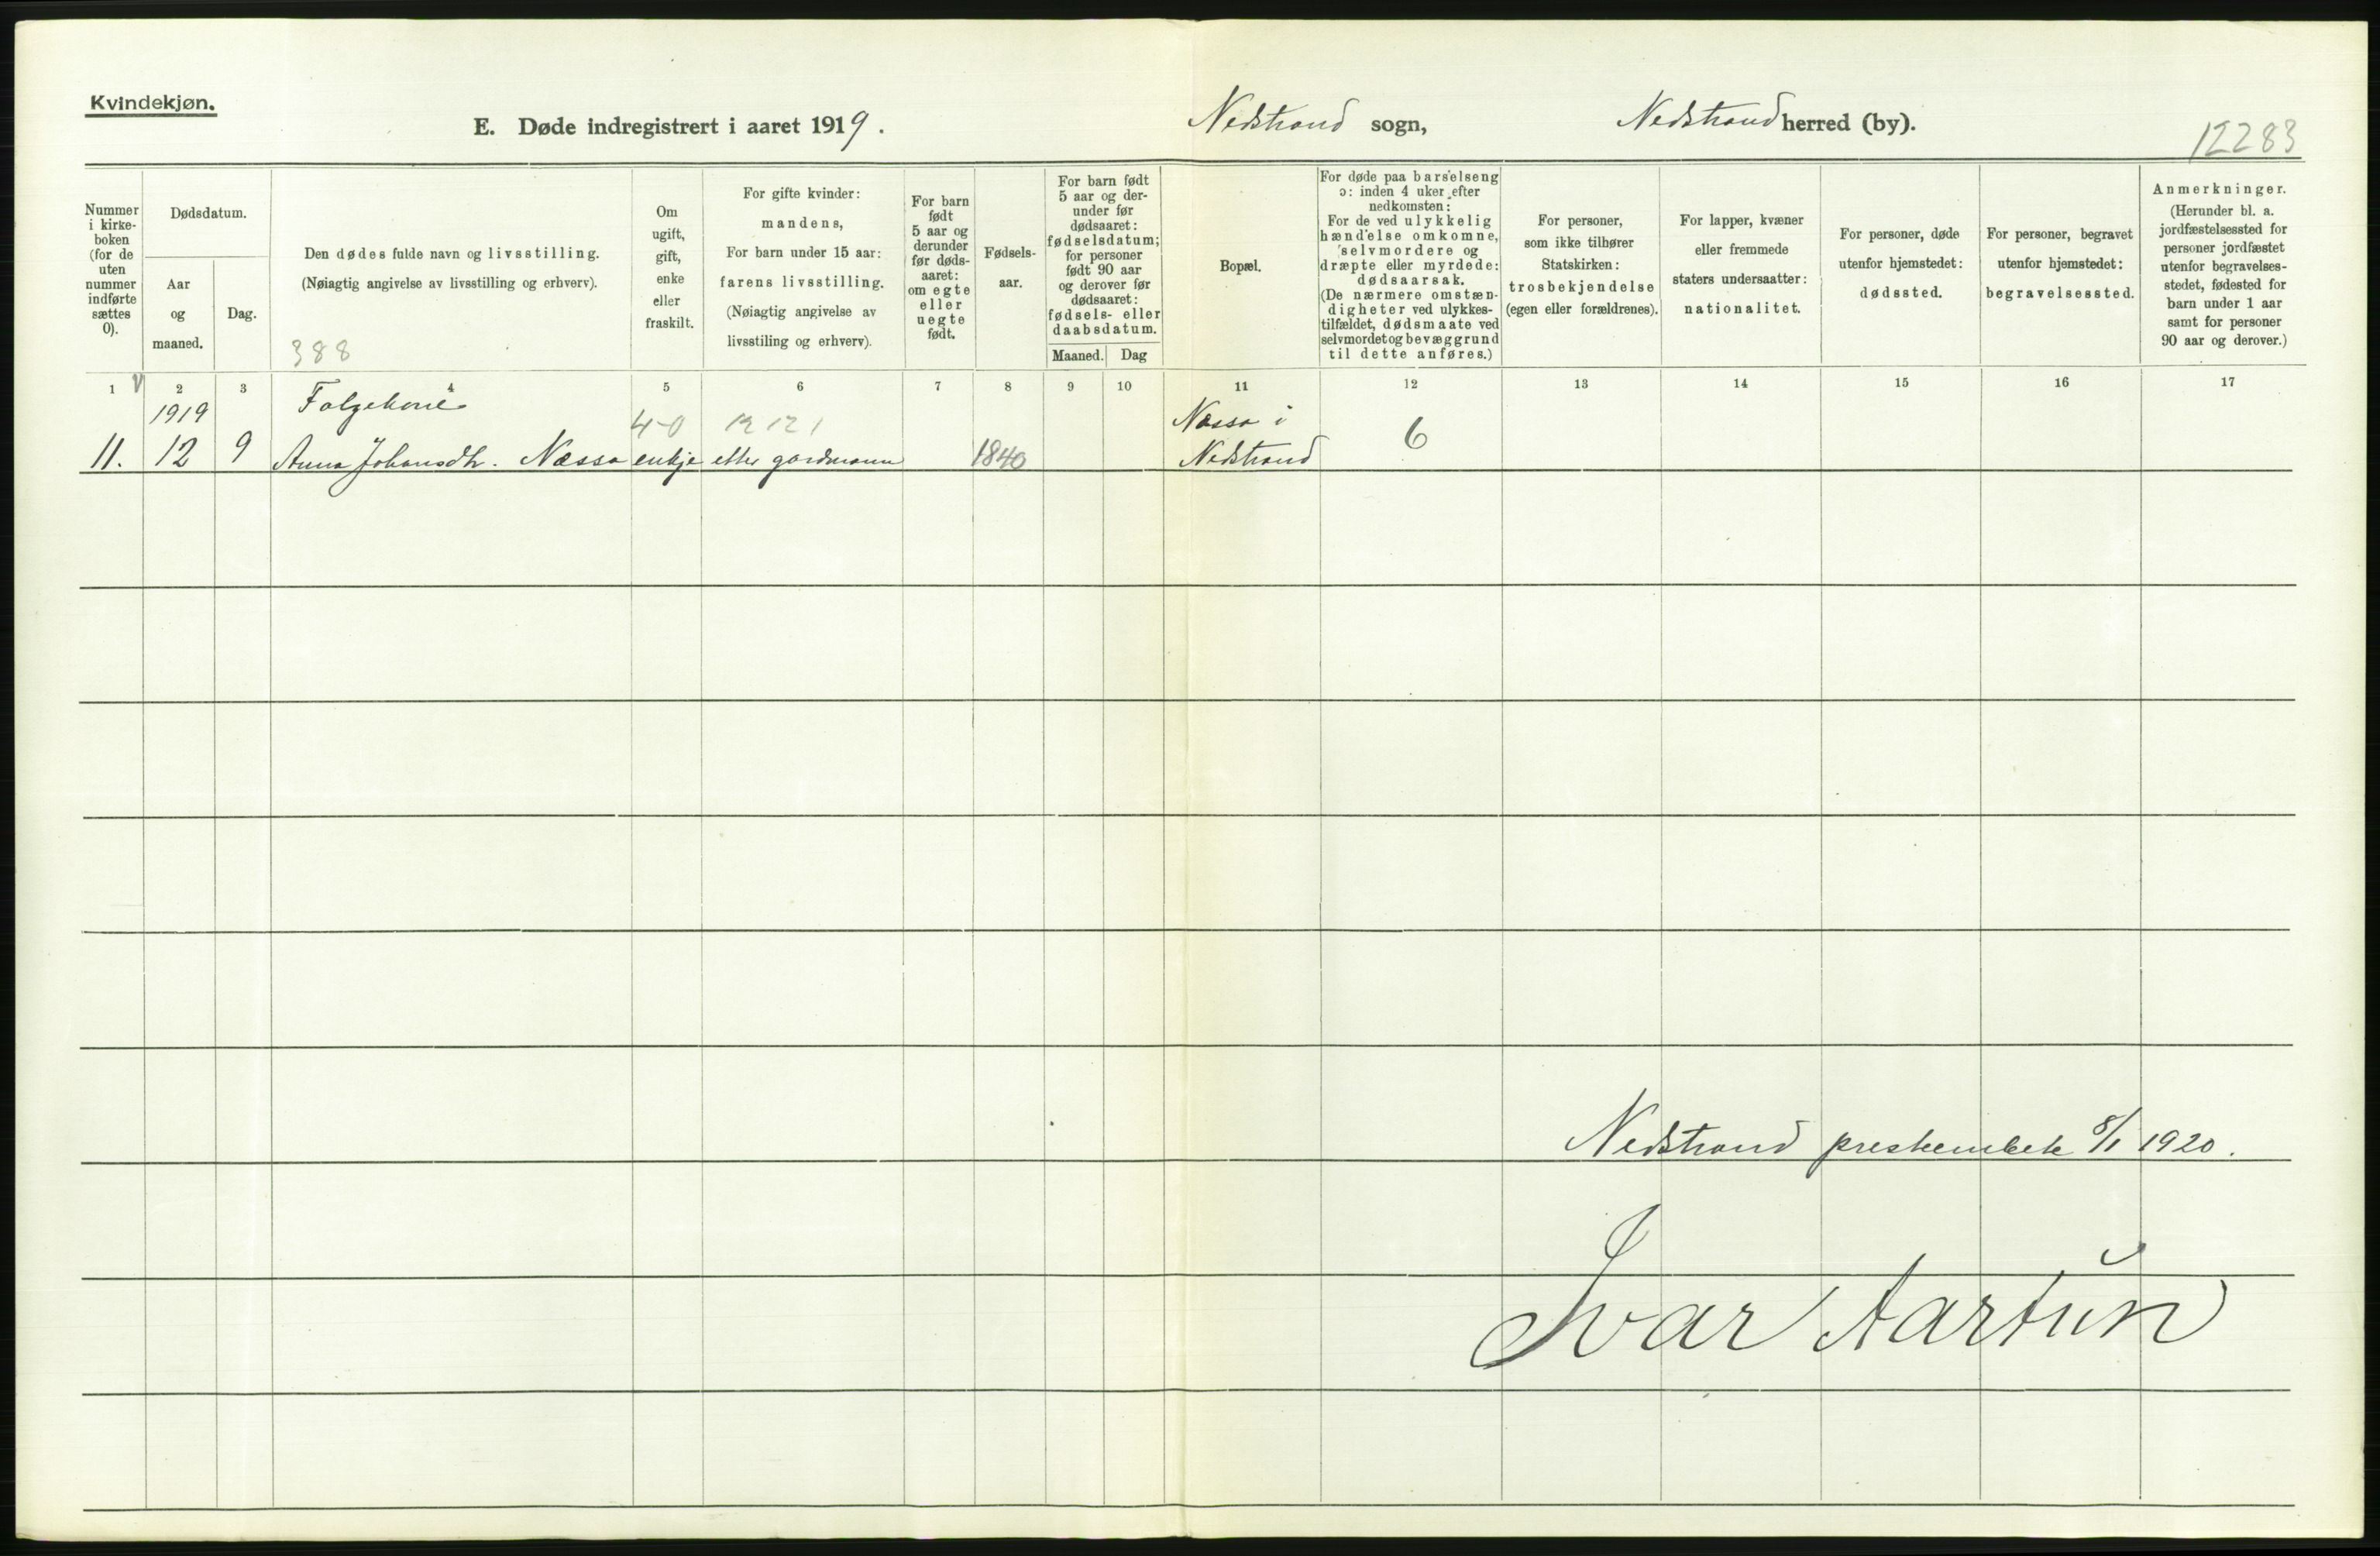 Kvindekjøn.
E. Døde indregistrert i aaret 1919.
Nedstrand sogn,
Nedstrand herred (by).
12283
Nummer
i kirke-
boken
(for de
uten
nummer
indførte
sættes
0).
Dødsdatum.
Aar
og
maaned.
Dag.
Den dødes fulde navn og livsstilling.
(Nøiagtig angivelse av livsstilling og erhverv).
388
Om
ugift,
gift,
enke
eller
fraskilt.
For gifte kvinder:
mandens,
For barn under 15 aar:
farens livsstilling.
(Nøiagtig angivelse av
livsstiling og erhverv).
For barn
født
5 aar og
derunder
før døds-
aaret:
om egte
eller
uegte
født.
Fødsels-
aar.
For barn født
5 aar og der-
under før
dødsaaret:
fødselsdatum;
for personer
født 90 aar
og derover før
dødsaaret:
fødsels- eller
daabsdatum.
Maaned.
Dag
Bopæl.
For døde paa barselseng
ɔ: inden 4 uker efter
nedkomsten:
For de ved ulykkelig
hændelse omkomne,
selvmordere og
dræpte eller myrdede:
dødsaarsak.
(De nærmere omstæn-
digheter ved ulykkes-
tilfældet, dødsmaate ved
selvmordet og bevæggrund
til dette anføres.)
For personer,
som ikke tilhører
Statskirken:
trosbekjendelse
(egen eller forældrenes).
For lapper, kvæner
eller fremmede
staters undersaatter:
nationalitet.
For personer, døde
utenfor hjemstedet:
dødssted.
For personer, begravet
utenfor hjemstedet:
begravelsessted.
Anmerkninger.
(Herunder bl. a.
jordfæstelsessted for
personer jordfæstet
utenfor begravelses-
stedet, fødested for
barn under 1 aar
samt for personer
90 aar og derover.)
1 2 3 4 5 6 7 8 9 10 11 12 13 14 15 16 17
1919 Folgekone 4-0 12121 Næssa i 6
11. 12 9 Anna Johansdtr. Næssa enkje etter gardmann 1840 Nedstrand
Nedstrand prestembete 8/1 1920.
Ivar Aartun